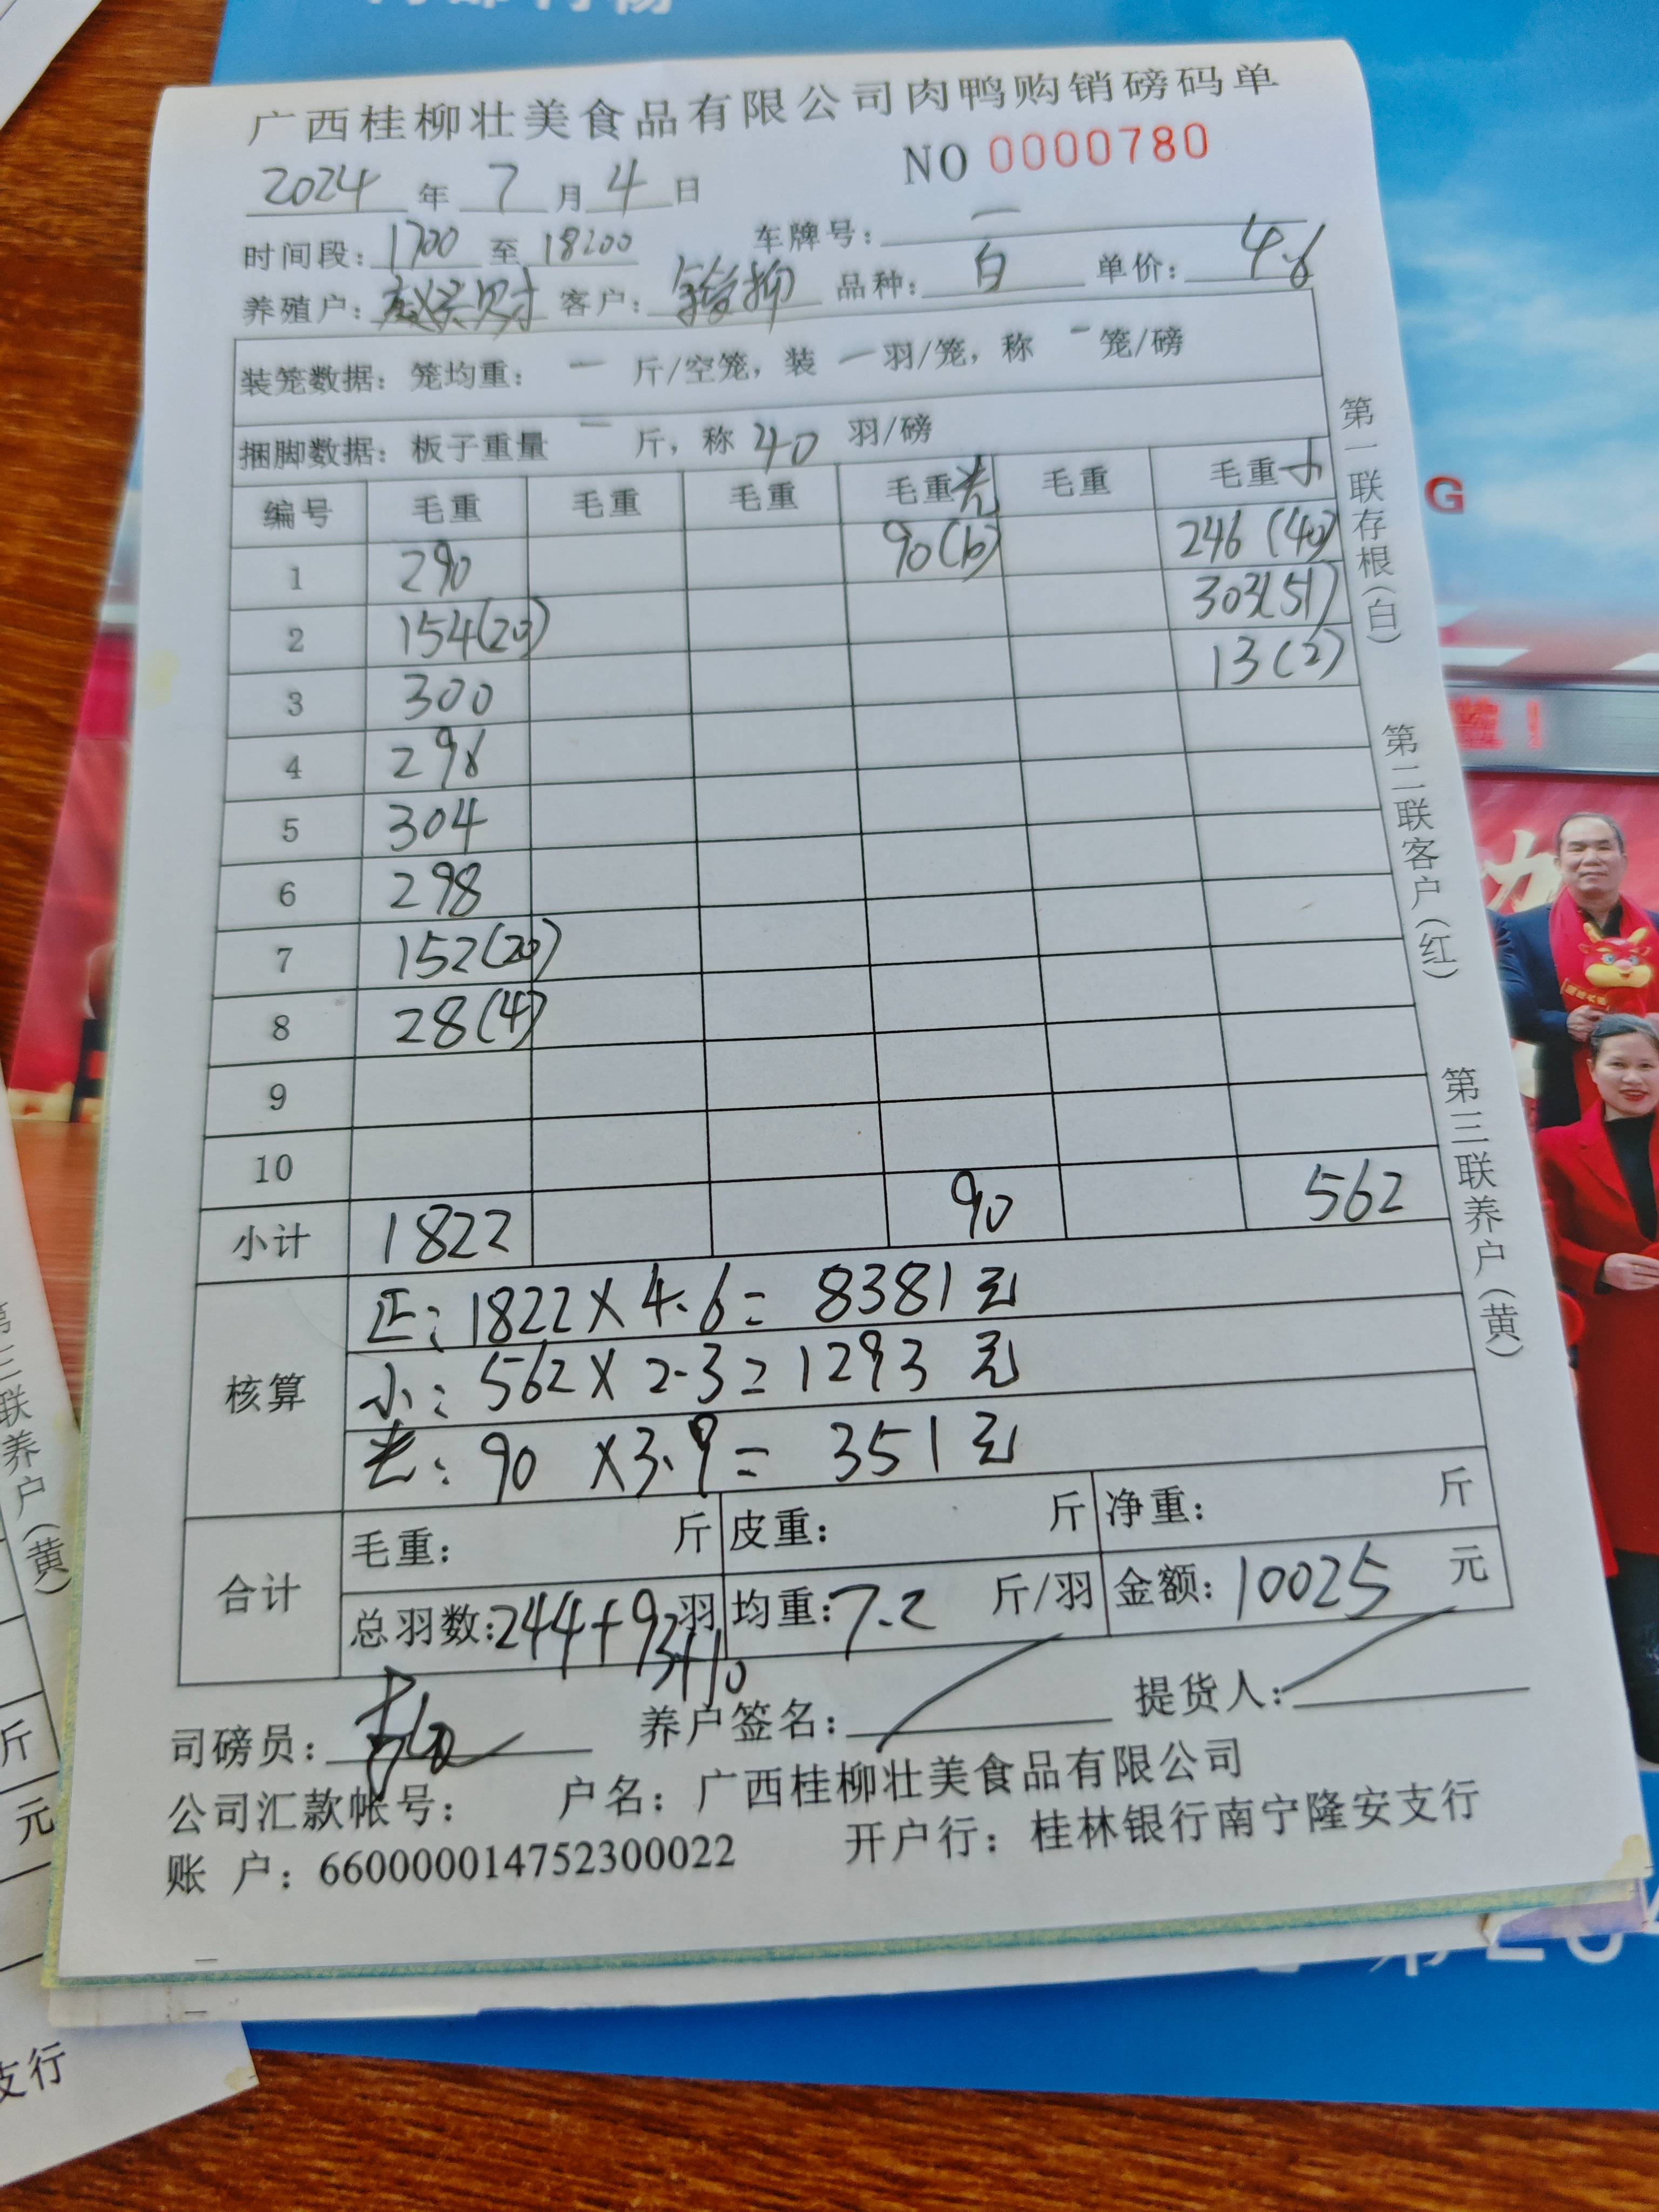 广西桂柳壮美食品有限公司肉鸭购销磅码单
NO 0000780
2024 年 7 月 4 日
时间段: 1700 至 18200 车牌号: 一
养殖户: 客户: 品种: 白 单价: 4.6
装笼数据: 笼均重: 一 斤/空笼, 装 一 羽/笼, 称 一 笼/磅
捆脚数据: 板子重量 一 斤, 称 40 羽/磅
编号 毛重 毛重 毛重 毛重 毛重 毛重小
1 290 90(10) 246 (40)
2 154(20) 303(51)
3 300 13(2)
4 296
5 304
6 298
7 152(20)
8 28(4)
9
10
小计 1822 90 562
核算
正: 1822×4.6= 8381元
小: 562×2.3=1293 元
: 90 ×3.9= 351元
合计
毛重: 斤 皮重: 斤 净重: 斤
总羽数:244+93+10 羽 均重:7.2 斤/羽 金额: 10025 元
司磅员: 养户签名: 提货人:
公司汇款帐号: 户名: 广西桂柳壮美食品有限公司
账 户: 660000014752300022 开户行: 桂林银行南宁隆安支行
第一联存根(白)
第二联客户(红)
第三联养户(黄)
G
第三联养户(黄)
斤
元
支行